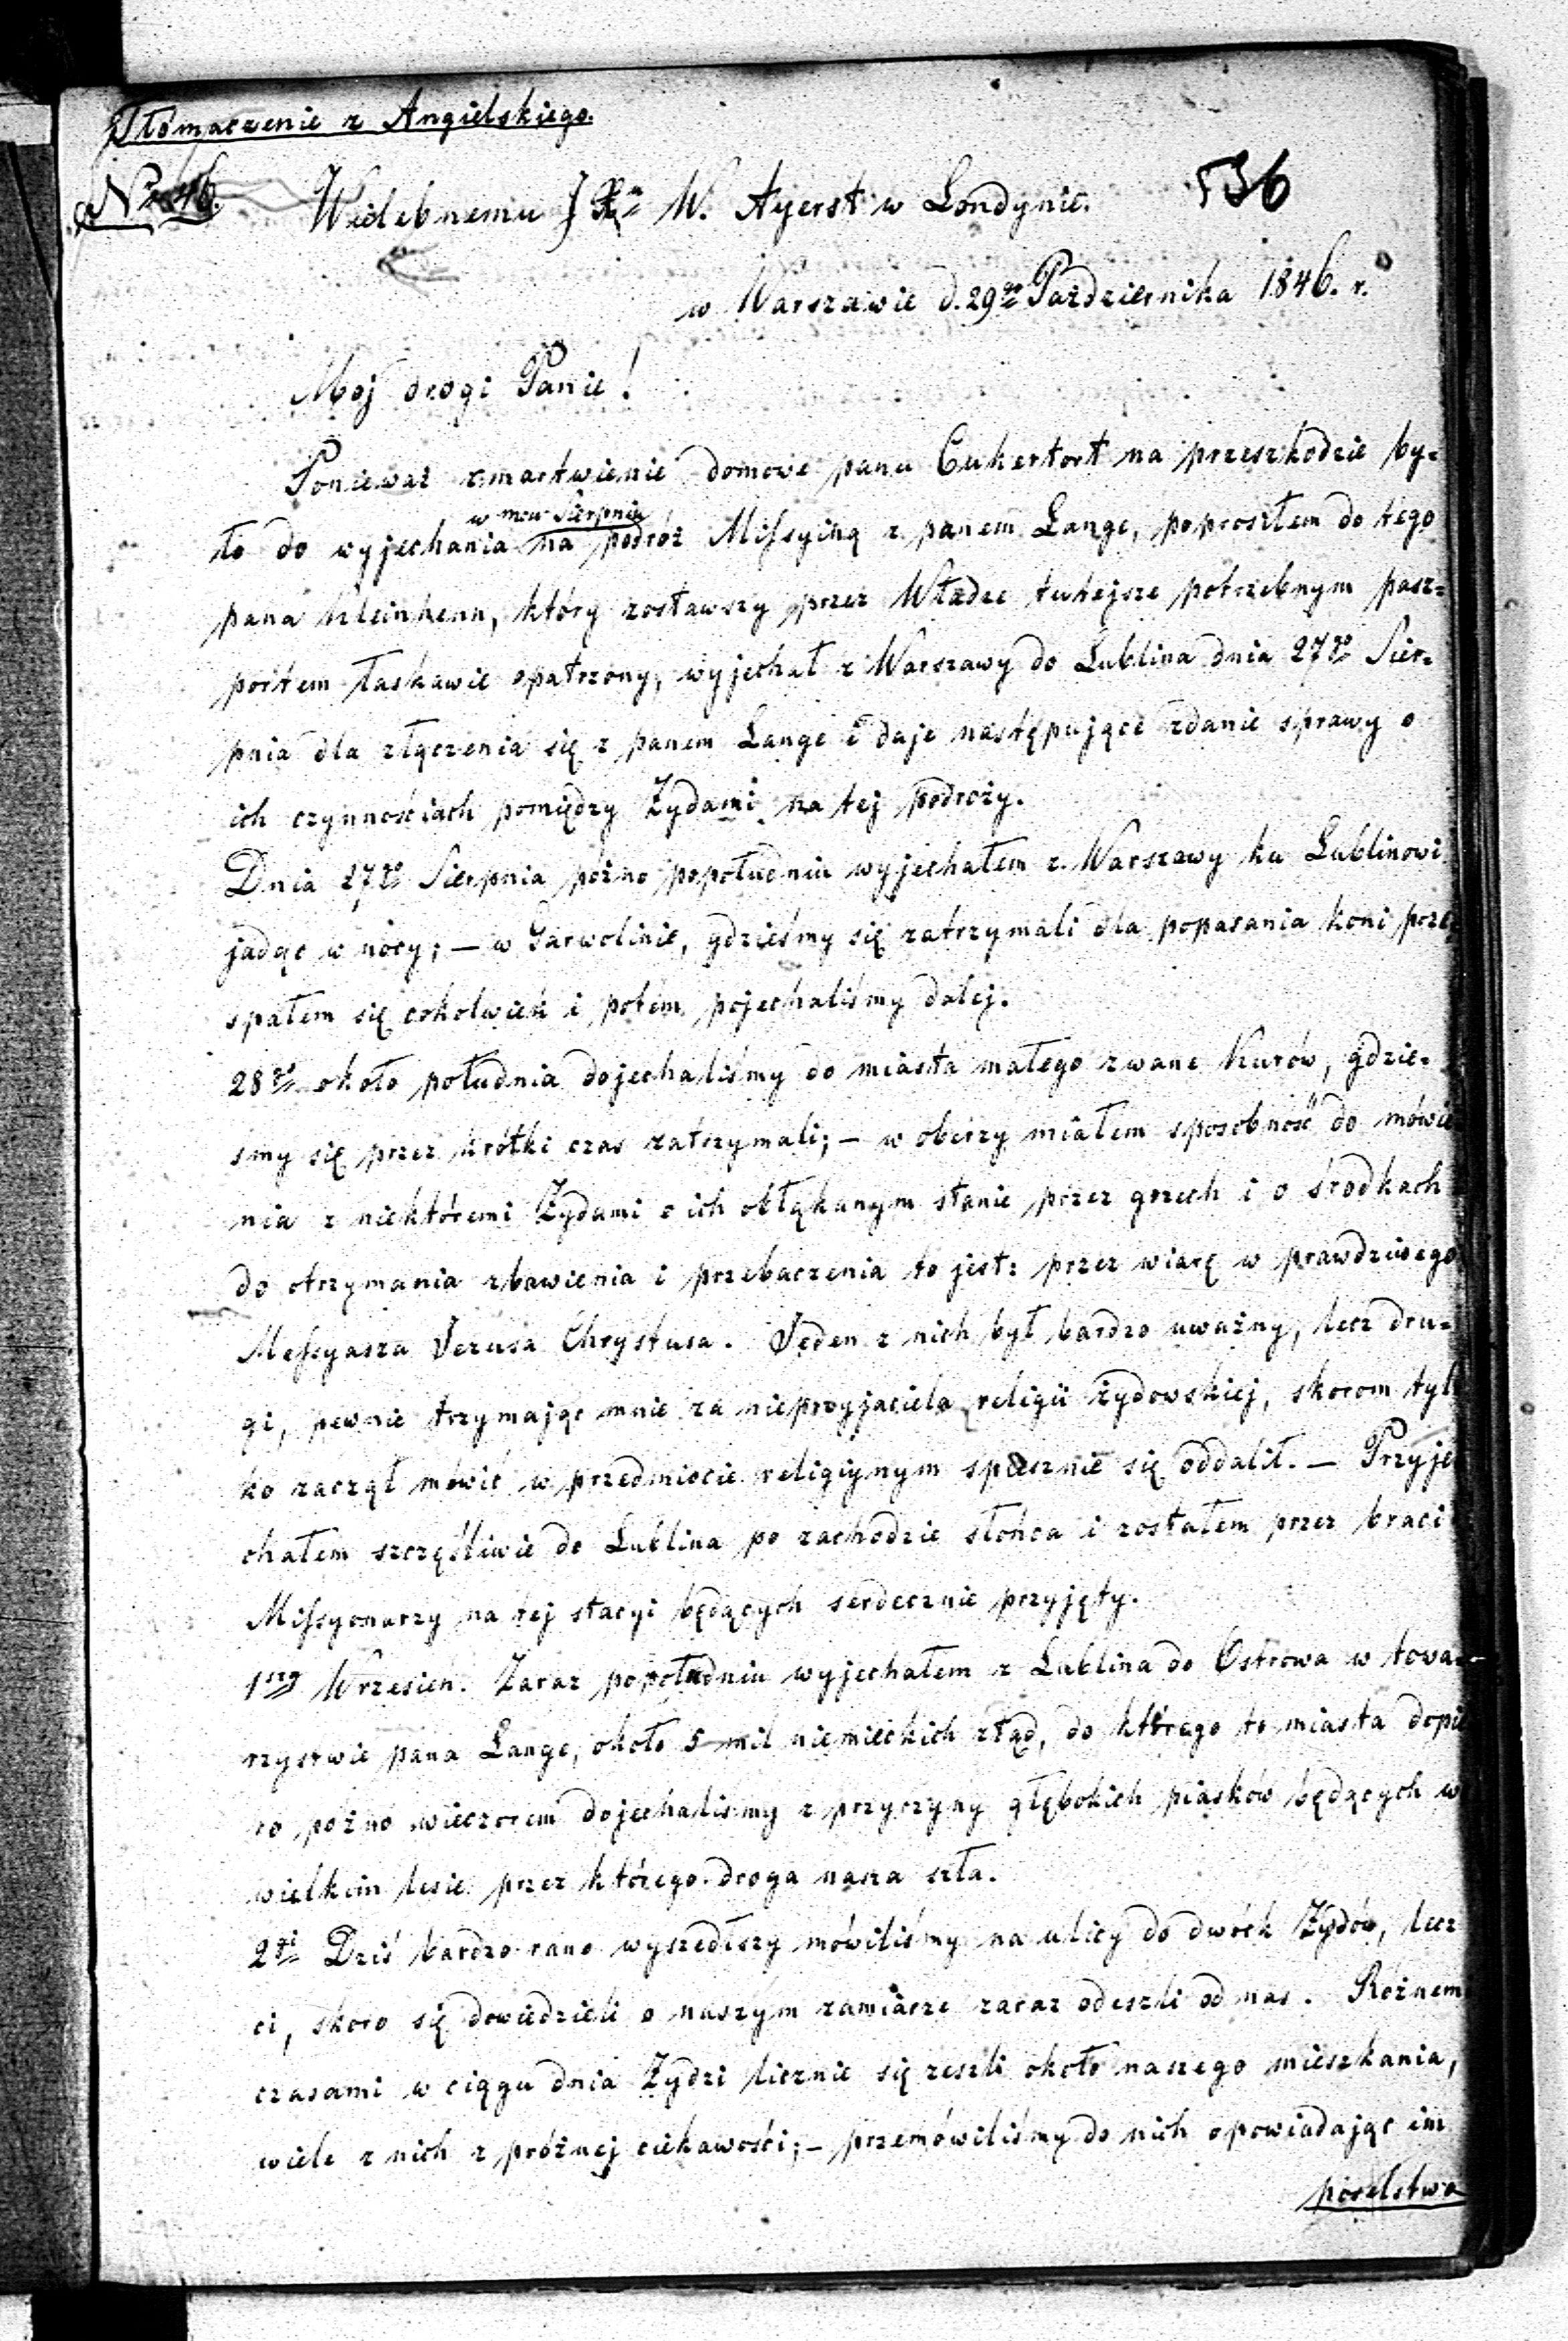 Tłómaczenie z Angielskiego.
No 46.
536
Wielebnemu W. Ayerst w Londynie.
w Warszawie d. 29go Października 1846. r.
Moj drogi Panie!
Ponieważ zmartwienie domowe pana Cukertort na przeszkodzie by-
w mcu Sierpniu
ło do wyjechania na podróż Missyiną z panem Lange, poprosiłem do tego
pana Kleinhenn, który zostawszy przez Władze tutejsze potrzebnym pasz-
portem łaskawie opatrzony, wyjechał z Warszawy do Lublina dnia 27go Sier-
pnia dla złączenia się z panem Lange i daje następujące zdanie sprawy o
ich czynnościach pomiędzy Żydami na tej podroży.
Dnia 27go Sierpnia pożno popołudniu wyjechałem z Warszawy ku Lublinowi
jadąc w nocy; — w Garwolinie, gdzieśmy się zatrzymali dla popasania koni prze
spałem się cokolwiek i potem pojechaliśmy dalej.
28go około południa dojechaliśmy do miasta małego zwane Kurów, gdzie-
smy się przez krótki czas zatrzymali; — w oberzy miałem sposobność do mówie
nia z niektóremi Żydami o ich obłąkanym stanie przez grzech i o środkach
do otrzymania zbawienia i przebaczenia to jest: przez wiarę w prawdziwego
Messyasza Jezusa Chrystusa. Jeden z nich był bardzo uważny, lecz dru-
gi, pewnie trzymając mnie za nieprzyjaciela religii żydowskiej, skorom tyl
ko zaczął mówić w przedmiocie religiynym spiesznie się oddalił. — Przyje
chałem szczęśliwie do Lublina po zachodzie słońca i zostałem przez braci
Missyonarzy na tej stacyi będących serdecznie przyjęty.
1szy Wrzesień. Zaraz popołudniu wyjechałem z Lublina do Ostrowa w towa-
rzystwie pana Lange, około 5 mil niemieckich ztąd, do którego to miasta dopie
ro pożno wieczorem dojechalismy z przyczyny głębokich piasków będących w
wielkim lesie przez którego droga nasza szła.
2gi Dziś bardzo rano wyszedłszy mówiliśmy na ulicy do dwóch Żydów, lecz
ci, skoro się dowiedzieli o naszym zamiarze zaraz odeszli od nas. Rożnem
czasami w ciągu dnia Żydzi licznie się zeszli około naszego mieszkania,
wiele z nich z próżnej ciekawości; — przemówiliśmy do nich opowiadając im
poselstwo